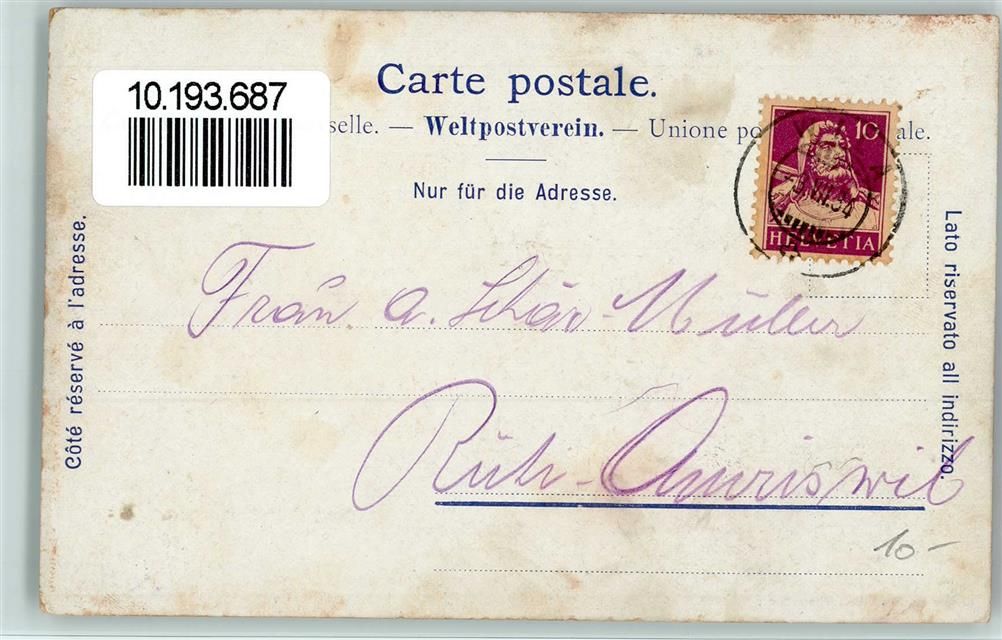 Carte postale.
10.193.687
selle. — Weltpostverein. — Unione po ale.
10
Nur für die Adresse.
HELVETIA
Côté réservé à l'adresse.
Lato riservato all indirizzo.
Frau A. Schär-Müller
Rüti-Amriswil
10-